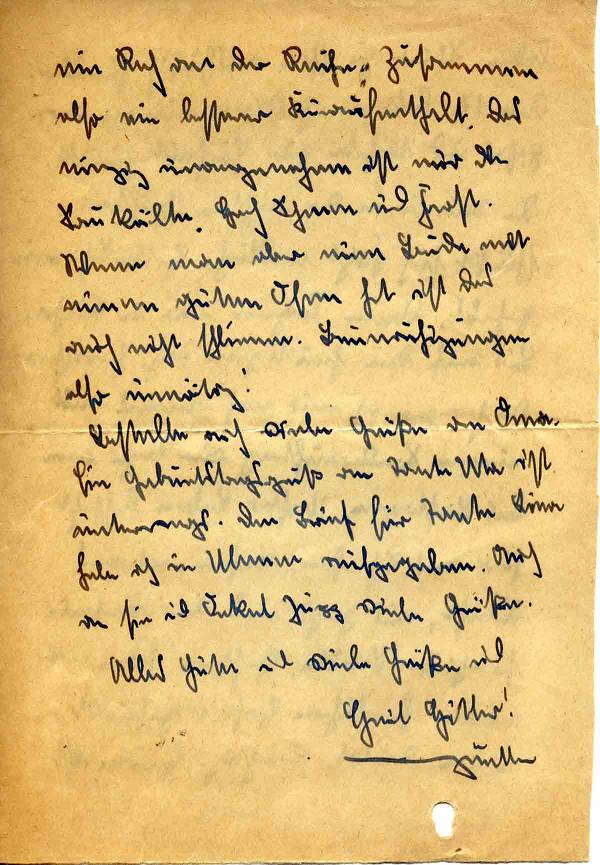 ein aus der Zusammen
also ein besserer Kuraufenthalt. Das
einzig unangenehme ist nur die
Saukälte. Schnee und Frost.
Wenn man aber eine Bude mit
einem guten Ofen hat ist das
auch nicht schlimm. Beunruhigungen
also unnötig!
Bestelle auch viele Grüße an Oma.
Ein Geburtstagsgruß an Tante Uta ist
unterwegs. Den Brief für Tante
habe ich in aufgegeben. Auch
an sie Onkel viele Grüße.
Alles Gute viele Grüße und
Heil Hitler!